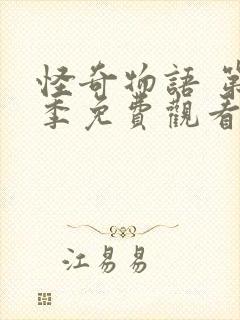 怪奇物語 第
季免費觀看
江易易